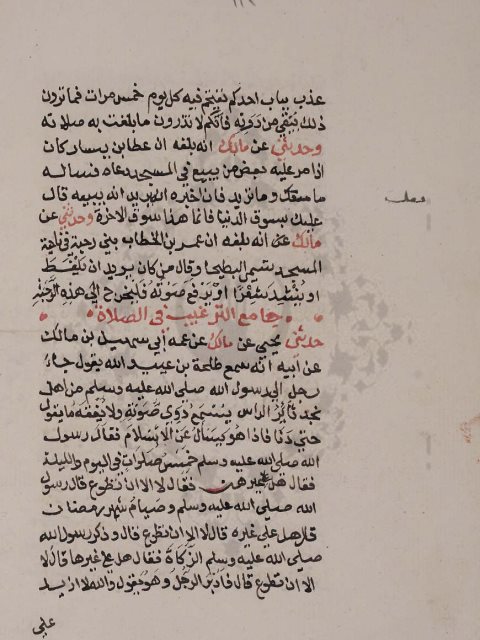 عذب بباب احدكم يقتحم فيه كل يوم خمس مرات فما ترون
ذلك يبقي من درنه فانكم لا تدرون ما بلغت به صلاته
وحدثني عن مالك انه بلغه ان عطا بن يسار كان
اذا مر عليه بعض من يبيع في المسجد دعاه فساله
ما معك وما تريد فان اخبره انه يريد ان يبيعه قال
عليك بسوق الدنيا فانما هذا سوق الاخرة وحدثني عن
مالك انه بلغه ان عمر بن الخطاب بني رحبة في ناحية
المسجد تسمي البطيحا وقال من كان يريد ان يلغط
او ينشد شعرا او يرفع صوته فليخرج الي هذه الرحبة
جامع الترغيب في الصلاة
حدثني يحيي عن مالك عن عمه ابي سهيل بن مالك
عن ابيه انه سمع طلحة بن عبيد الله يقول جاء
رجل الي رسول الله صلي الله عليه وسلم من اهل
نجد ثائر الراس يسمع دوي صوته ولا يفقه ما يقول
حتي دنا فاذا هو يسأل عن الاسلام فقال رسول
الله صلي الله عليه وسلم خمس صلوات في اليوم والليلة
فقال هل علي غيرهن فقال لا الا ان تطوع قال رسول
الله صلي الله عليه وسلم وصيام شهر رمضان
قال هل علي غيره قال لا الا ان تطوع قال وذكر رسول الله
صلي الله عليه وسلم الزكاة فقال هل علي غيرها قال لا
الا ان تطوع قال فادبر الرجل وهو يقول والله لا ازيد
علي